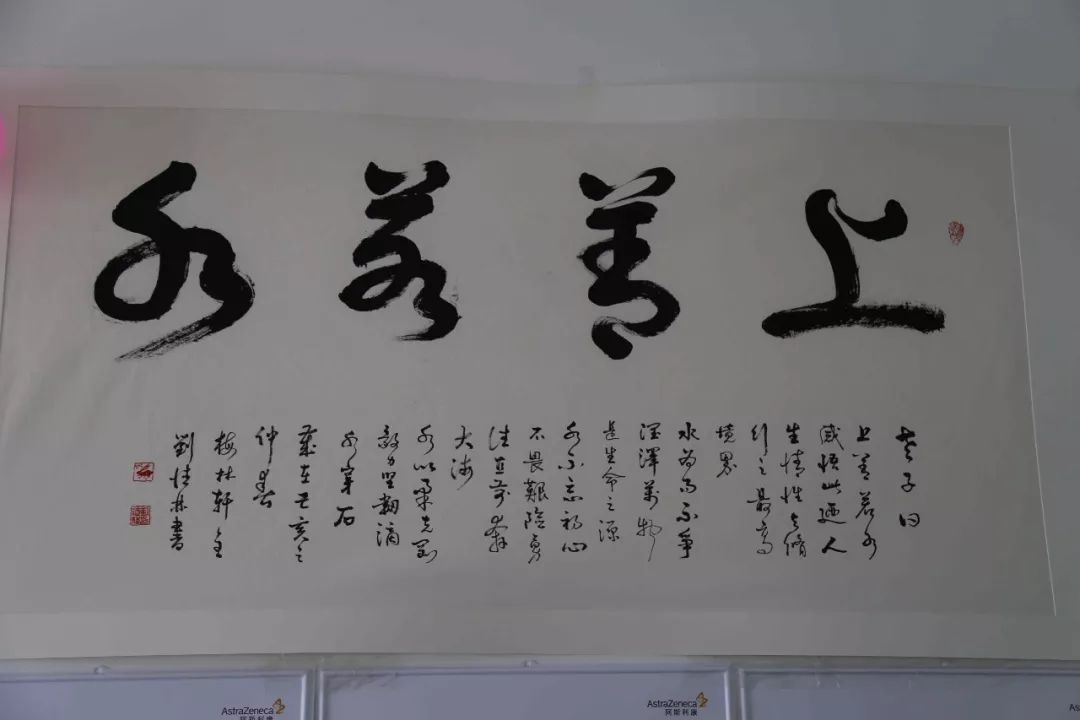 上善若水
老子曰
上善若水
感悟此迺人
生情性之脩
行之最高
境界
水为而不争
泽万物
是生命之源
水不忘初心
不畏艱險勇
往直前奔
大海
水以柔克剛
韌滴
水穿石
歲在己亥之
仲春
梅林軒主
劉情林書
AstraZeneca
阿斯利康
AstraZeneca
阿斯利康
As
阿